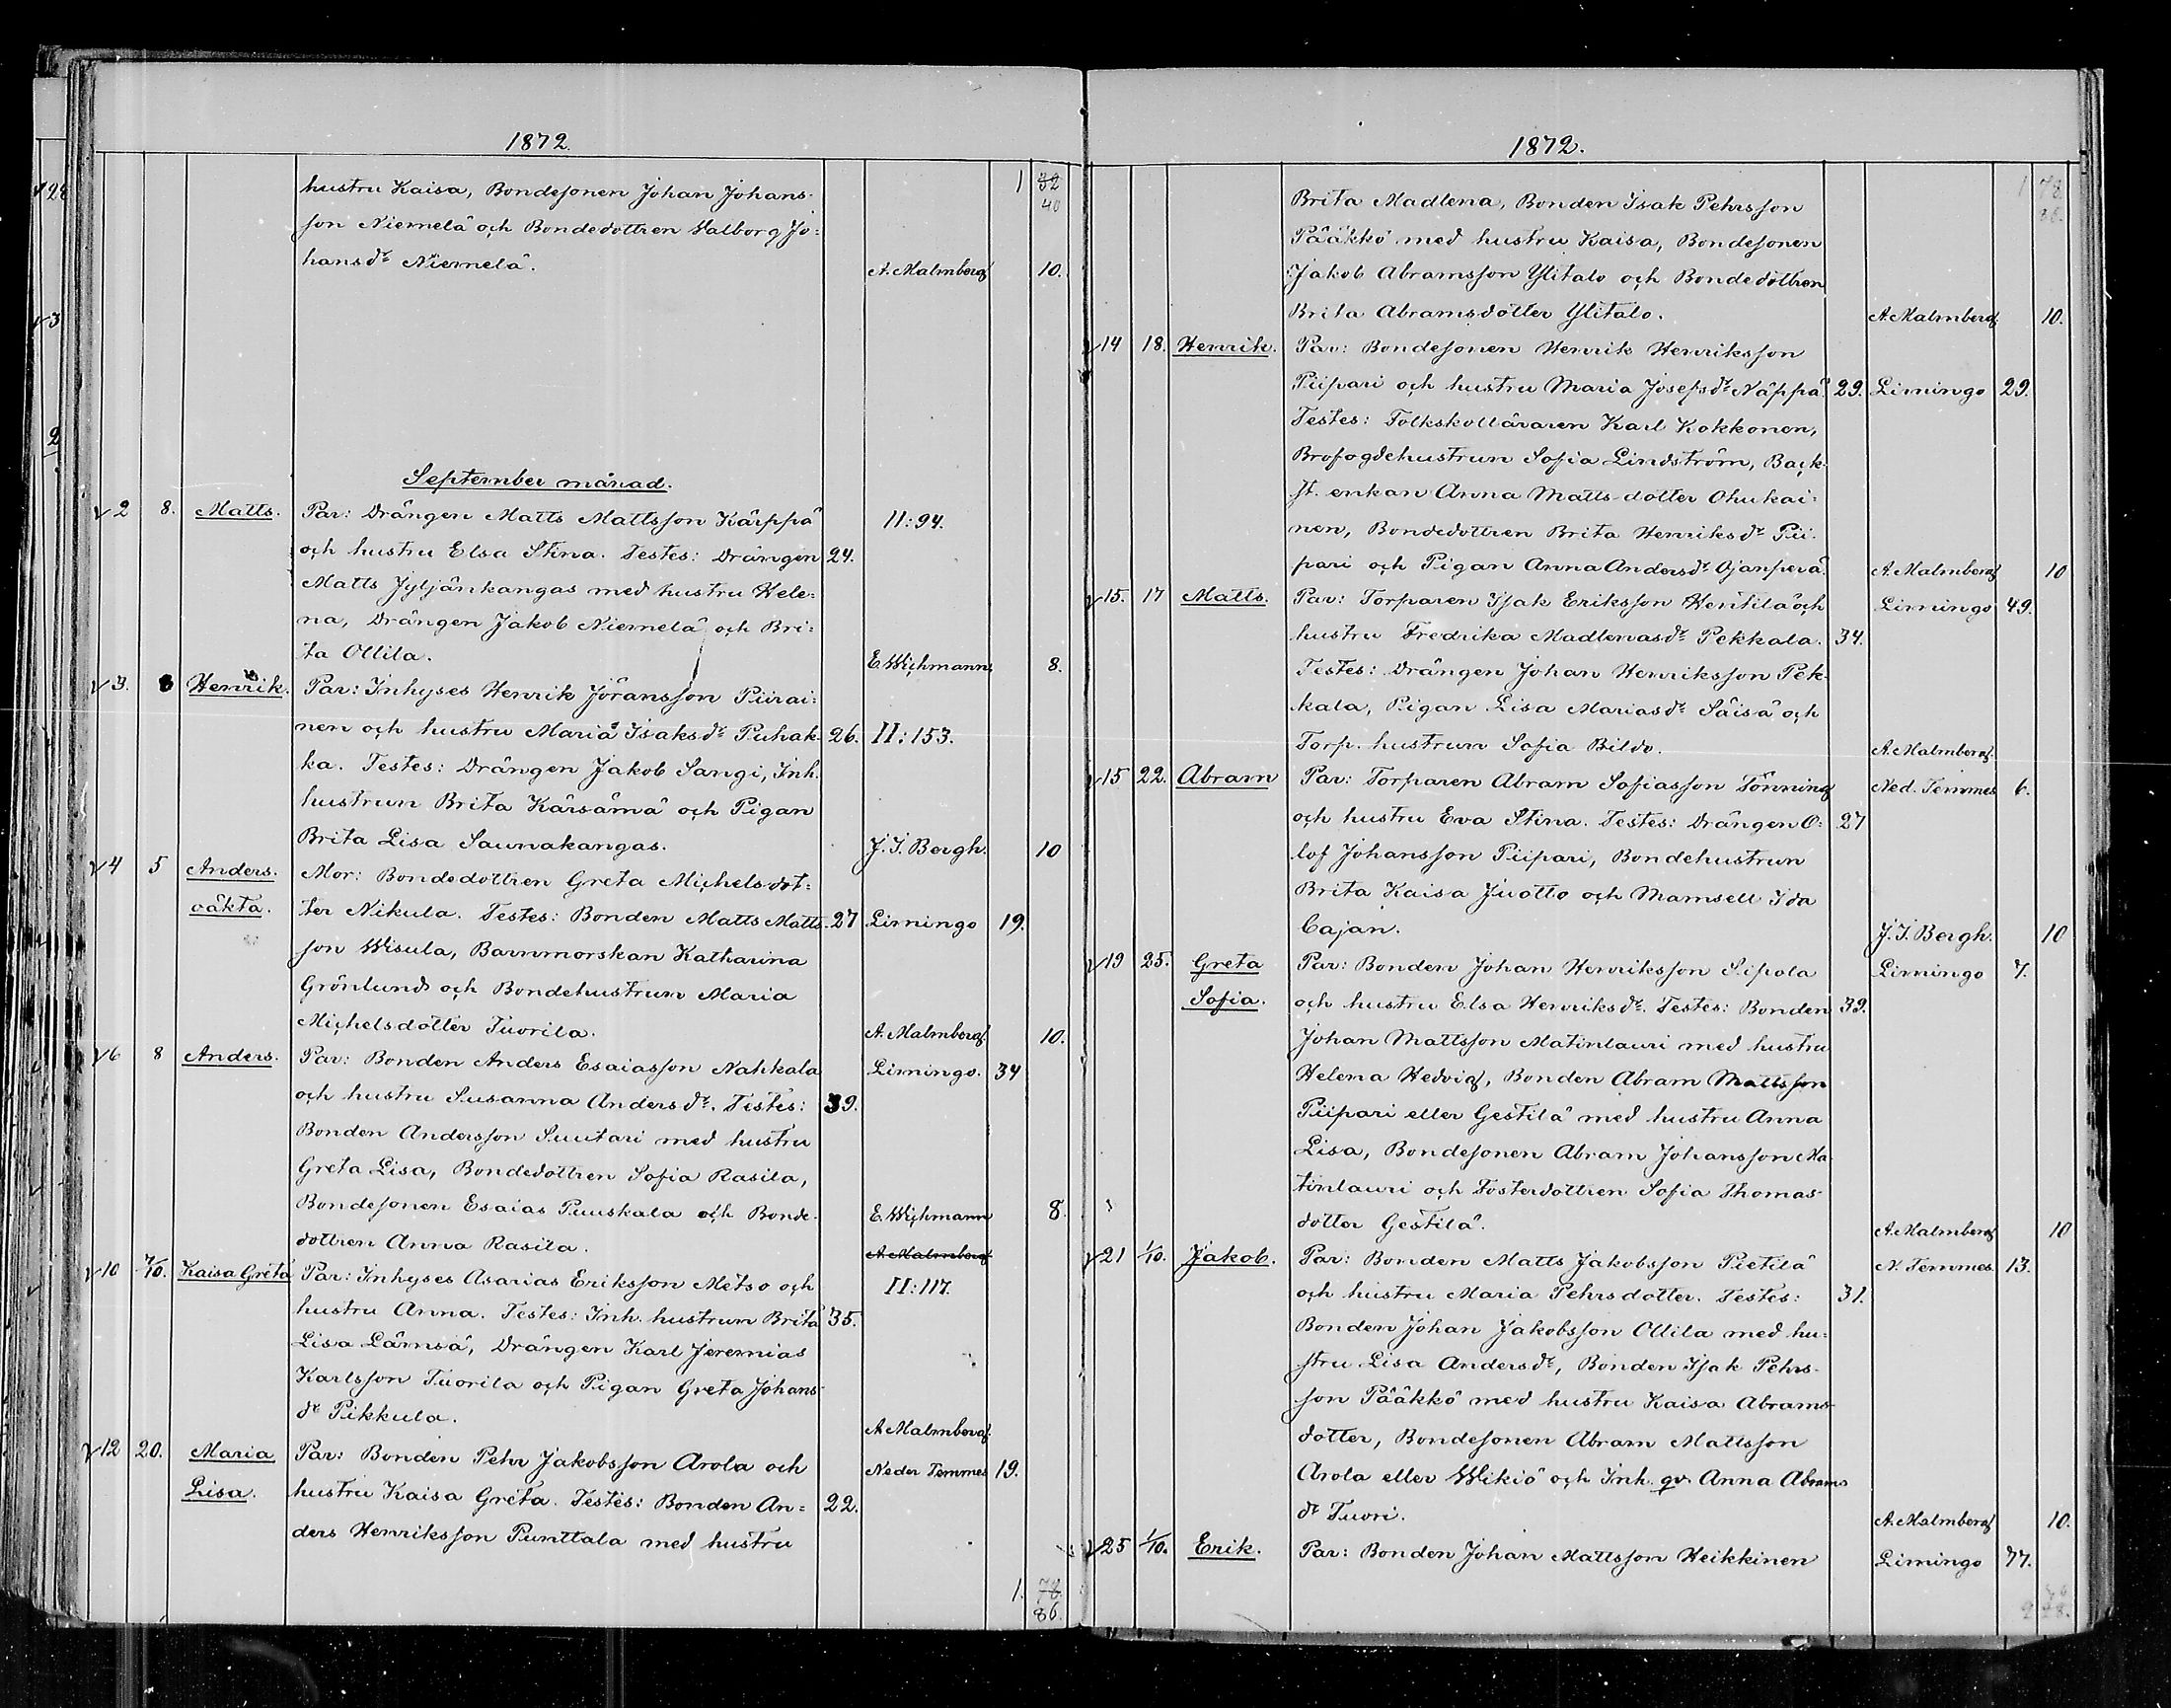 1872.
hustru Kaisa, Bondesonen Johan Johans- 1 32
son Niemelä och Bondedottren Walborg Jo= 40
hansdr Niemelä. A. Malmberg 10.
September månad.
2 8. Matts. Par: Drängen Matts Mattsson Kärppä II:94.
och hustru Elsa Stina. Testes: Drängen 24.
Matts Jyljänkangas med hustru Hele=
na, Drängen Jakob Niemelä och Bri=
ta Ollila. E. Wichmann 8.
3. 8 Henrik. Par: Inhyses Henrik Jöransson Piirai=
nen och hustru Maria Isaksdr Puhak- 26. II:153.
ka. Testes: Drängen Jakob Sangi, Inh.
hustrun Brita Kärsämä och Pigan
Brita Lisa Saunakangas. J. I. Bergh. 10
4 5 Anders. Mor: Bondedottren Greta Michelsdot=
oäkta. ter Nikula. Testes: Bonden Matts Matts- 27 Limingo 19.
son Wisula, Barnmorskan Katharina
Grönlund och Bondehustrun Maria
Michelsdotter Tuorila. A. Malmberg. 10.
6 8 Anders. Par: Bonden Anders Esaiasson Nahkala Limingo. 34
och hustru Susanna Andersdr. Testes: 39.
Bonden Andersson Suutari med hustru
Greta Lisa, Bondedottren Sofia Rasila,
Bondesonen Esaias Puuskala och Bonde- E. Wichmann 8.
dottren Anna Rasila. A. Malmberg
10 7/10. Kaisa Greta Par: Inhyses Asarias Eriksson Metso och II:117.
hustru Anna. Testes: Inh. hustrun Brita 35.
Lisa Lämsä, Drängen Karl Jeremias
Karlsson Tuorila och Pigan Greta Johans-
dr Pikkula. A. Malmberg.
12 20. Maria Par: Bonden Pehr Jakobsson Arola och Neder Temmes 19.
Lisa. hustru Kaisa Greta. Testes: Bonden An= 22.
ders Henriksson Punttala med hustru
1. 78.
86.
1872.
Brita Madlena, Bonden Isak Pehrsson 1 78.
Pääkkö med hustru Kaisa, Bondesonen 86.
Jakob Abramsson Ylitalo och Bondedottren
Brita Abramsdotter Ylitalo. A. Malmberg 10.
14 18. Henrik. Par: Bondesonen Henrik Henriksson
Piipari och hustru Maria Josefsdr Näppä. 29. Limingo 29.
Testes: Folkskolläraren Karl Kokkonen,
Brofogdehustrun Sofia Lindström, Back-
st. enkan Anna Mattsdotter Ohukai=
nen, Bondedottren Brita Henriksdr Pii-
pari och Pigan Anna Andersdr Ojanperä. A. Malmberg 10
15. 17 Matts. Par: Torparen Isak Eriksson Henttilä och Limingo 49.
hustru Fredrika Madlenasdr Pekkala. 34.
Testes: Drängen Johan Henriksson Pek-
kala, Pigan Lisa Mariasdr Säisä och
Torp. hustrun Sofia Bildo. A. Malmberg.
15 22. Abram Par: Torparen Abram Sofiasson Tönning Ned. Temmes 6.
och hustru Eva Stina. Testes: Drängen O= 27
lof Johansson Piipari, Bondehustrun
Brita Kaisa Juotto och Mamsell Ida
Cajan. J. I. Bergh. 10
19 25. Greta Par: Bonden Johan Henriksson Sipola Limingo 7.
Sofia. och hustru Elsa Henriksdr. Testes: Bonden 39.
Johan Mattsson Matinlauri med hustru
Helena Hedvig, Bonden Abram Mattsson
Piipari eller Gestilä med hustru Anna
Lisa, Bondesonen Abram Johansson Ma-
tinlauri och Fosterdottren Sofia Thomas-
dotter Gestilä. A. Malmberg 10
21 1/10. Jakob. Par: Bonden Matts Jakobsson Pietilä N. Temmes. 13.
och hustru Maria Pehrsdotter. Testes: 31.
Bonden Johan Jakobsson Ollila med hu=
stru Lisa Andersdr, Bonden Isak Pehrs-
son Pääkkö med hustru Kaisa Abrams-
dotter, Bondesonen Abram Mattsson
Arola eller Wikiö och Inh. qv. Anna Abrams
dr Tuori. A. Malmberg 10.
25 1/10. Erik. Par: Bonden Johan Mattsson Heikkinen Limingo 77.